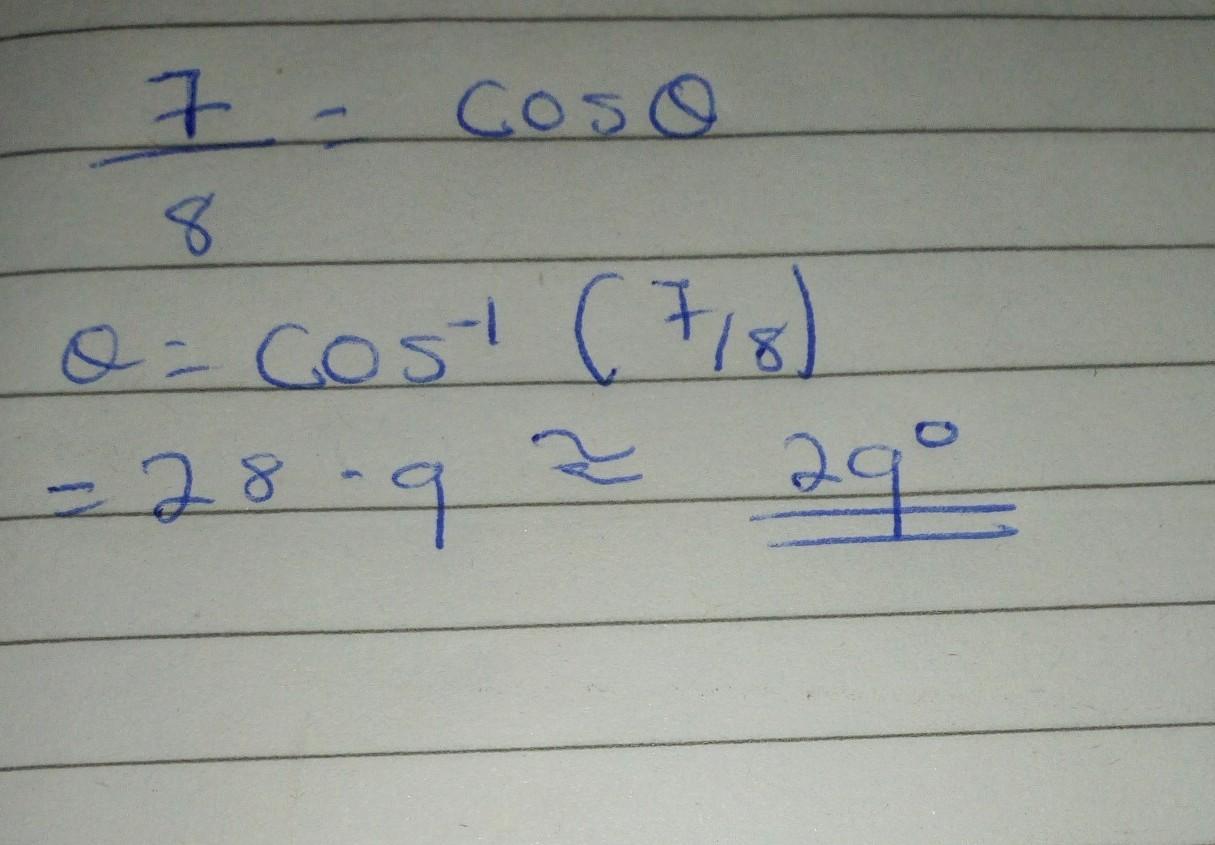 7/8 = cosθ
θ = cos⁻¹ (7/8)
= 28.9 ≈ 29°